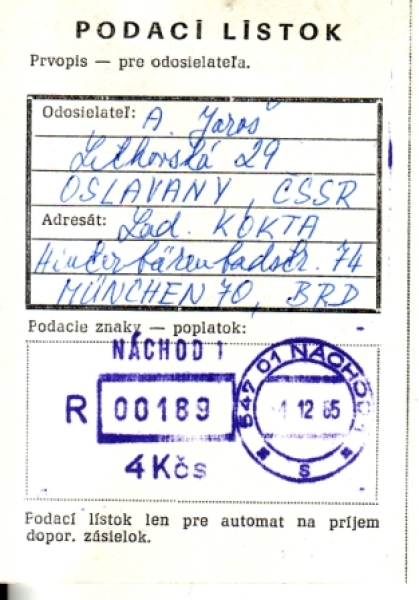 PODACÍ LÍSTOK
Prvopis — pre odosielateľa.
Odosielateľ: A. Jaroš
Letkovská 29
OSLAVANY, ČSSR
Adresát: Lad. KOKTA
Hinterbärenbadstr. 74
MÜNCHEN 70, BRD
Podacie znaky — poplatok:
NÁCHOD 1
R 00189
4 Kčs
547 01 NÁCHOD 1
-1 12 85
* S *
Podací lístok len pre automat na príjem
dopor. zásielok.